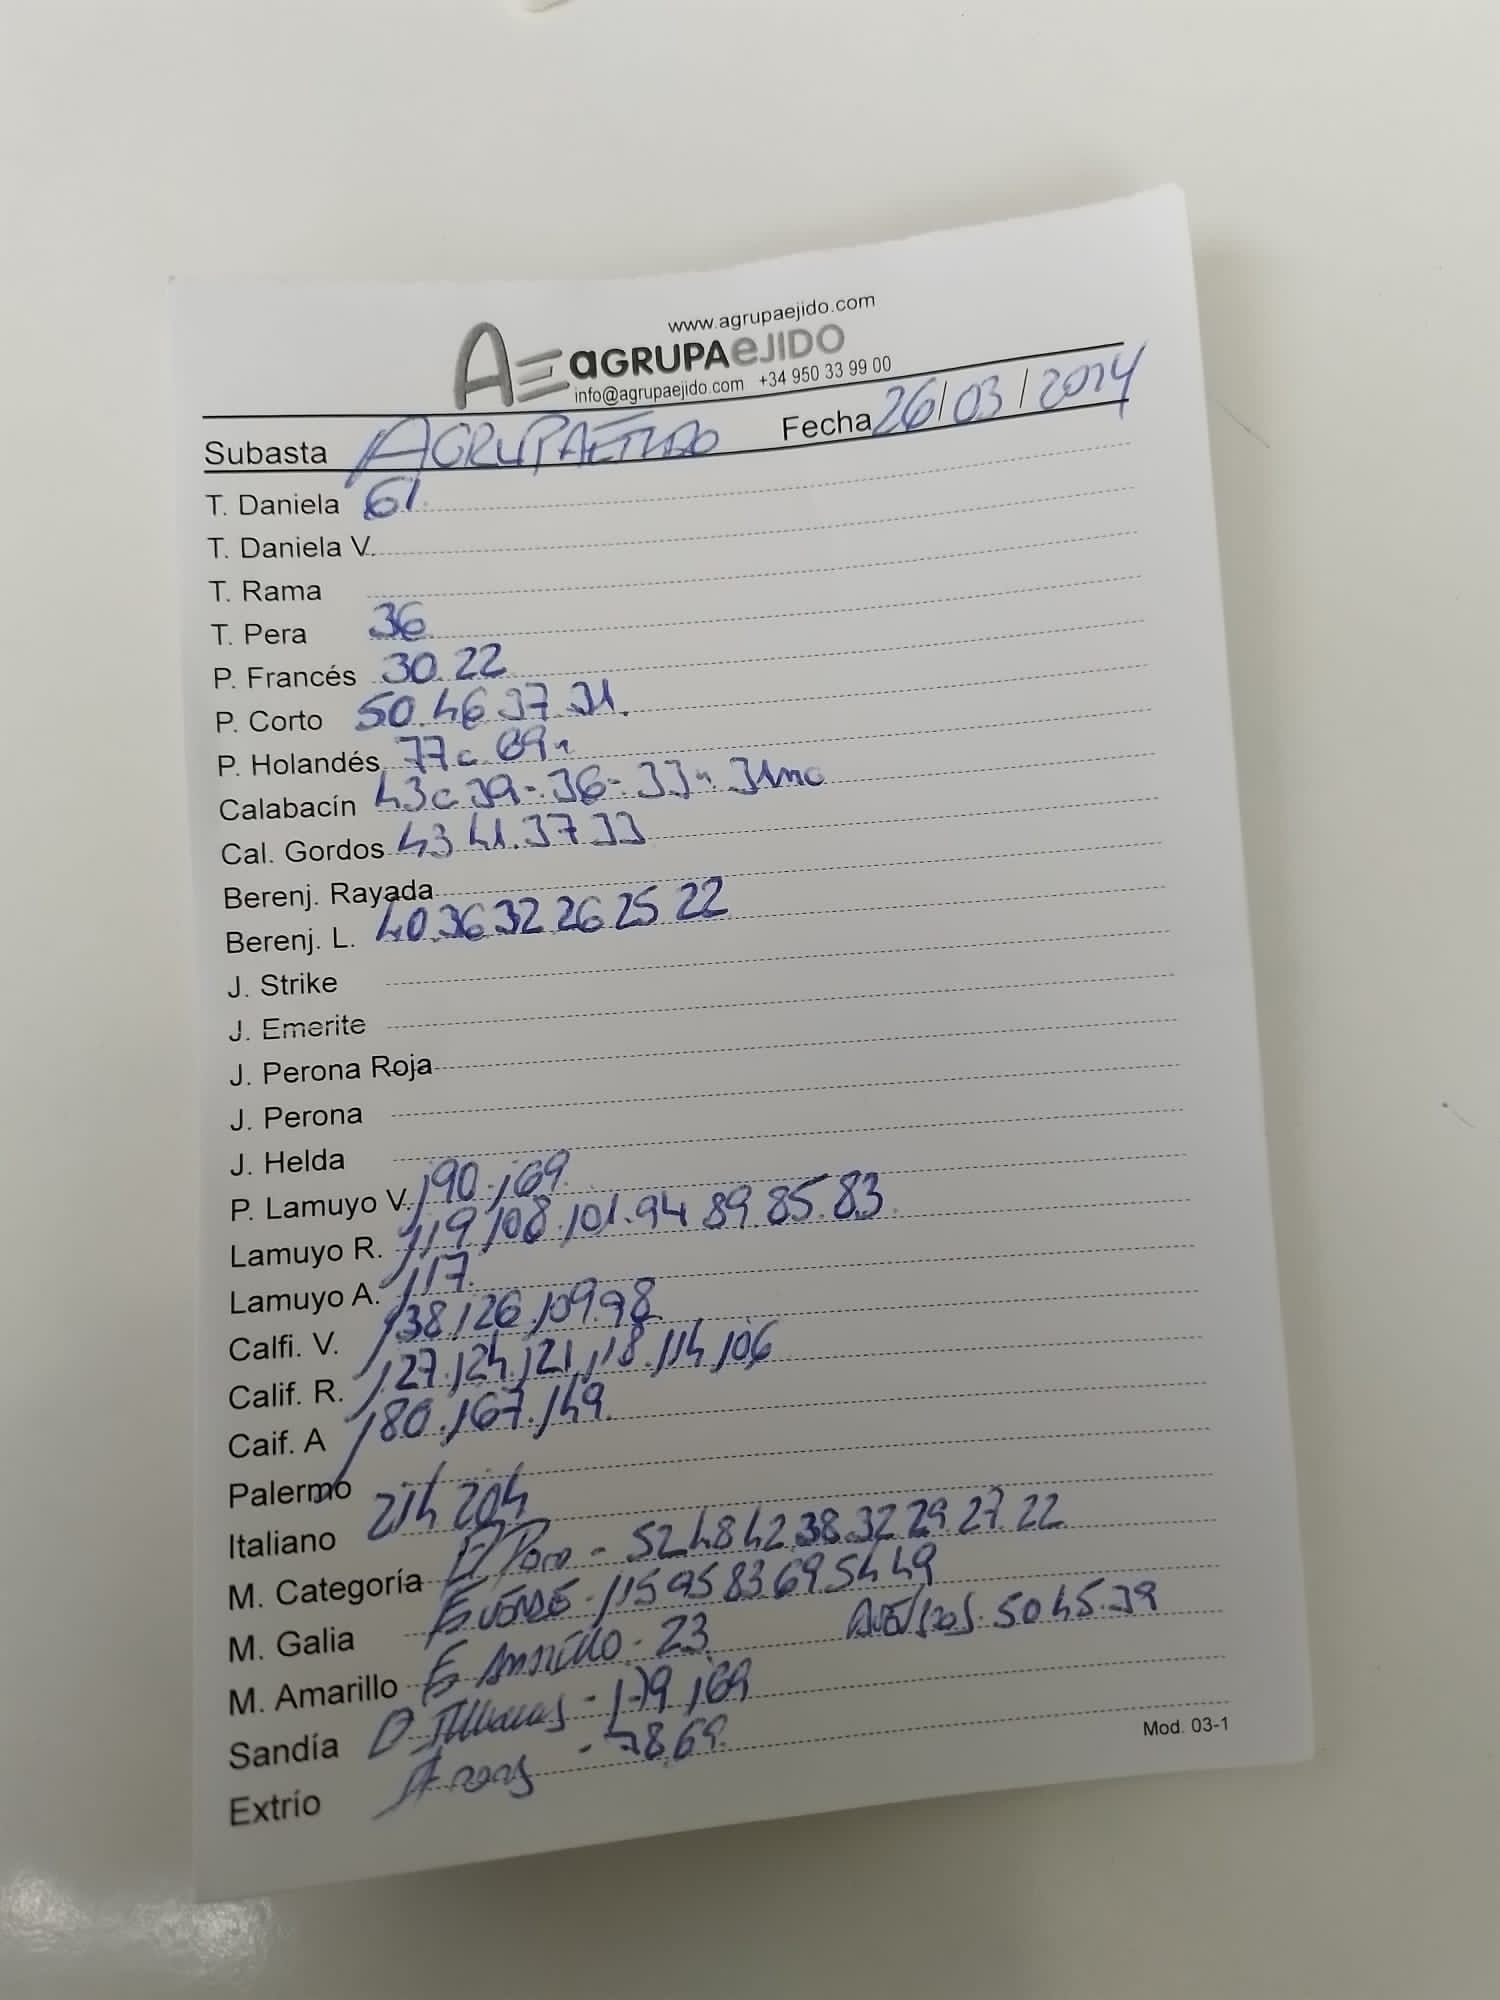 www.agrupaejido.com
AE aGRUPAeJIDO
info@agrupaejido.com +34 950 33 99 00
Subasta AGRUPAEJIDO Fecha 26/03/2024
T. Daniela 61.
T. Daniela V.
T. Rama
T. Pera 36
P. Francés 30.22
P. Corto 50.46 37 31.
P. Holandés 77c 69n
Calabacín 43c 39-.36-33n.31mc
Cal. Gordos 43 41.37 33
Berenj. Rayada
Berenj. L. 40.36 32 26 25 22
J. Strike
J. Emerite
J. Perona Roja
J. Perona
J. Helda
P. Lamuyo V. 190.169.
Lamuyo R. 119 108.101.94 89.85.83.
Lamuyo A. 117.
Calfi. V. 138.126.109.98
Calif. R. 127.124.121.118.114.106
Caif. A 180.167.149.
Palermo
Italiano 214 204
M. Categoría - 52 48 42 38.32 29.27.22
M. Galia VERDE - 115 95 83 69.54 49
M. Amarillo AMARILLO - 23 50 45.39
Sandía - 179.169
Extrío - 78.69.
Mod. 03-1